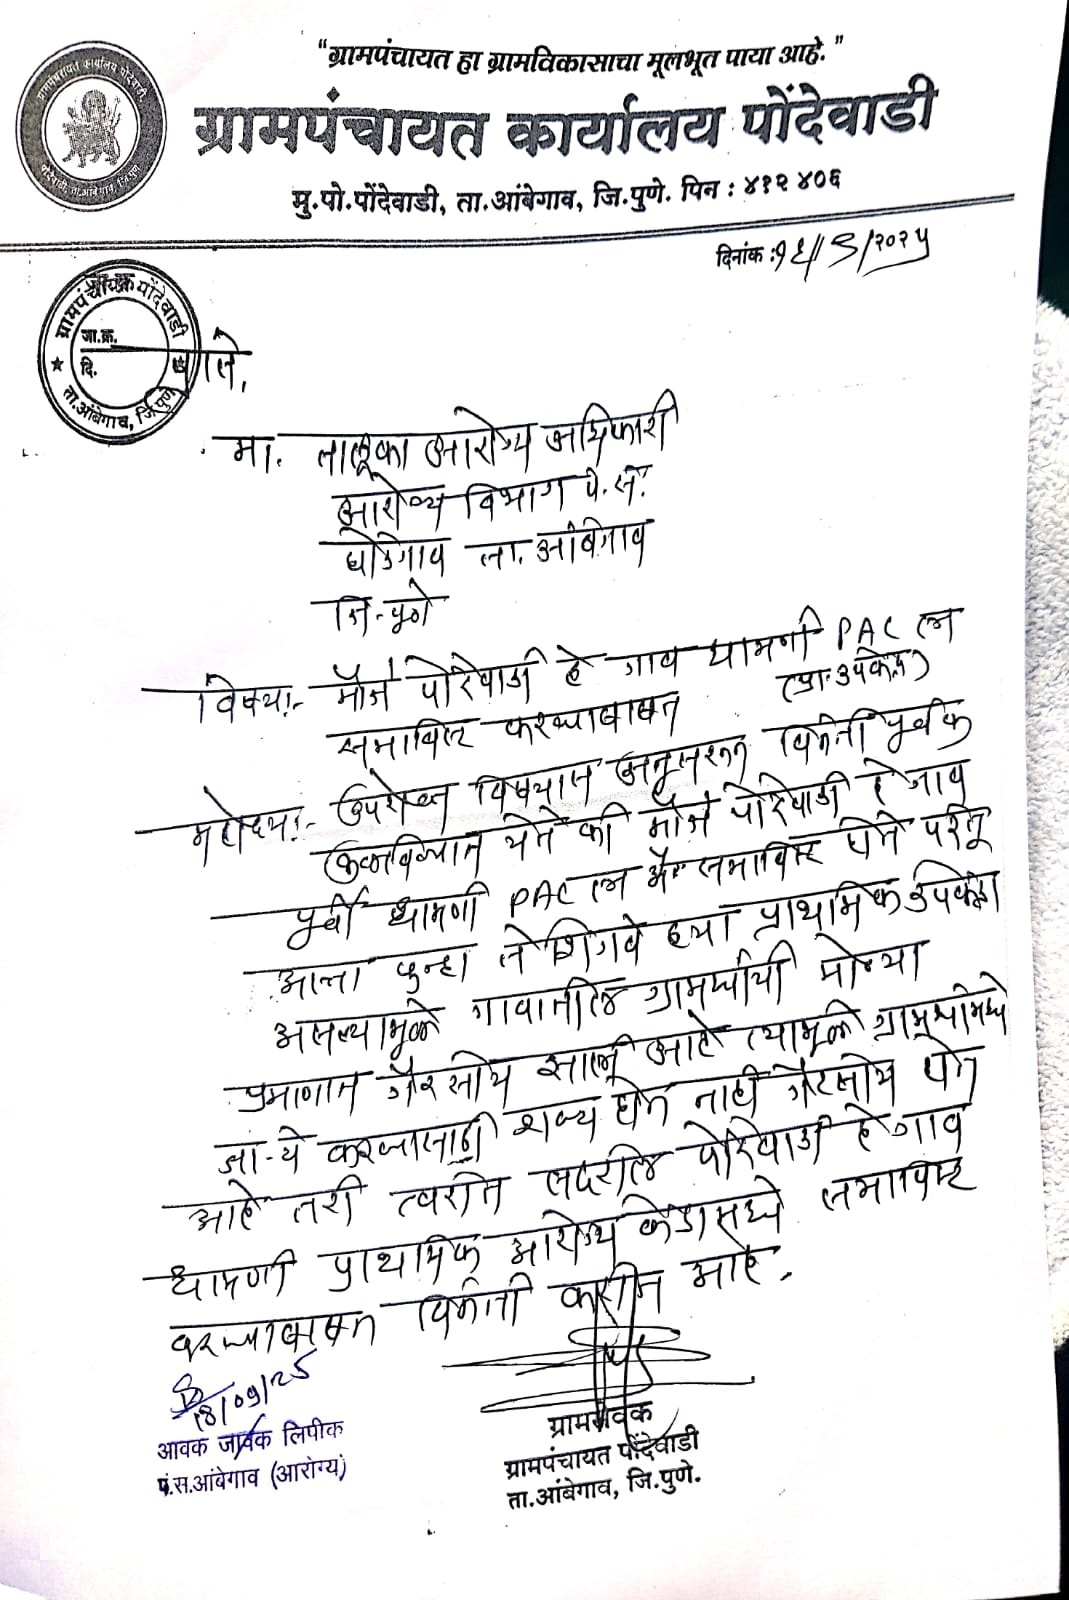 "ग्रामपंचायत हा ग्रामविकासाचा मूलभूत पाया आहे."
ग्रामपंचायत कार्यालय पोंदेवाडी
मु.पो.पोंदेवाडी, ता.आंबेगाव, जि.पुणे. पिन : ४१२ ४०६
ग्रामपंचायत कार्यालय पोंदेवाडी
पोंदेवाडी, ता.आंबेगाव, जि.पुणे
दिनांक :१६/९/२०२५
ग्रामपंचायत पोंदेवाडी
जा.क्र.
दि.
ता.आंबेगाव, जि.पुणे
प्रति,
मा. तालूका आरोग्य अधिकारी
आरोग्य विभाग पं.स.
घोडेगाव ता. आंबेगाव
जि-पूणे
विषय:- मौजे पोंदेवाडी हे गाव धामणी PAC त
(प्रा.उपकेंद्र)
समाविष्ट करण्याबाबत
महोदय:- उपरोक्त विषयास अनुसरून विनंती पूर्वक
कळविण्यात येते की मौजे पोंदेवाडी हे गाव
पूर्वी धामणी PAC त समाविष्ट होते परंतू
आता पुन्हा ते शिंगवे ह्या प्राथमिक उपकेंद्रात
असल्यामूळे गावातील ग्रामस्थांची मोठ्या
प्रमाणात गैरसोय झाली आहे त्यामूळे ग्रामस्थांमध्ये
जा-ये करण्यासाठी शक्य होत नाही गैरसोय होत
आहे तरी त्वरीत सदरील पोंदेवाडी हे गाव
धामणी प्राथमिक आरोग्य केंद्रामध्ये समाविष्ट
करण्याबाबत विनंती करीत आहे.
18/09/25
आवक जावक लिपीक
पं.स.आंबेगाव (आरोग्य)
ग्रामसेवक
ग्रामपंचायत पोंदेवाडी
ता.आंबेगाव, जि.पुणे.